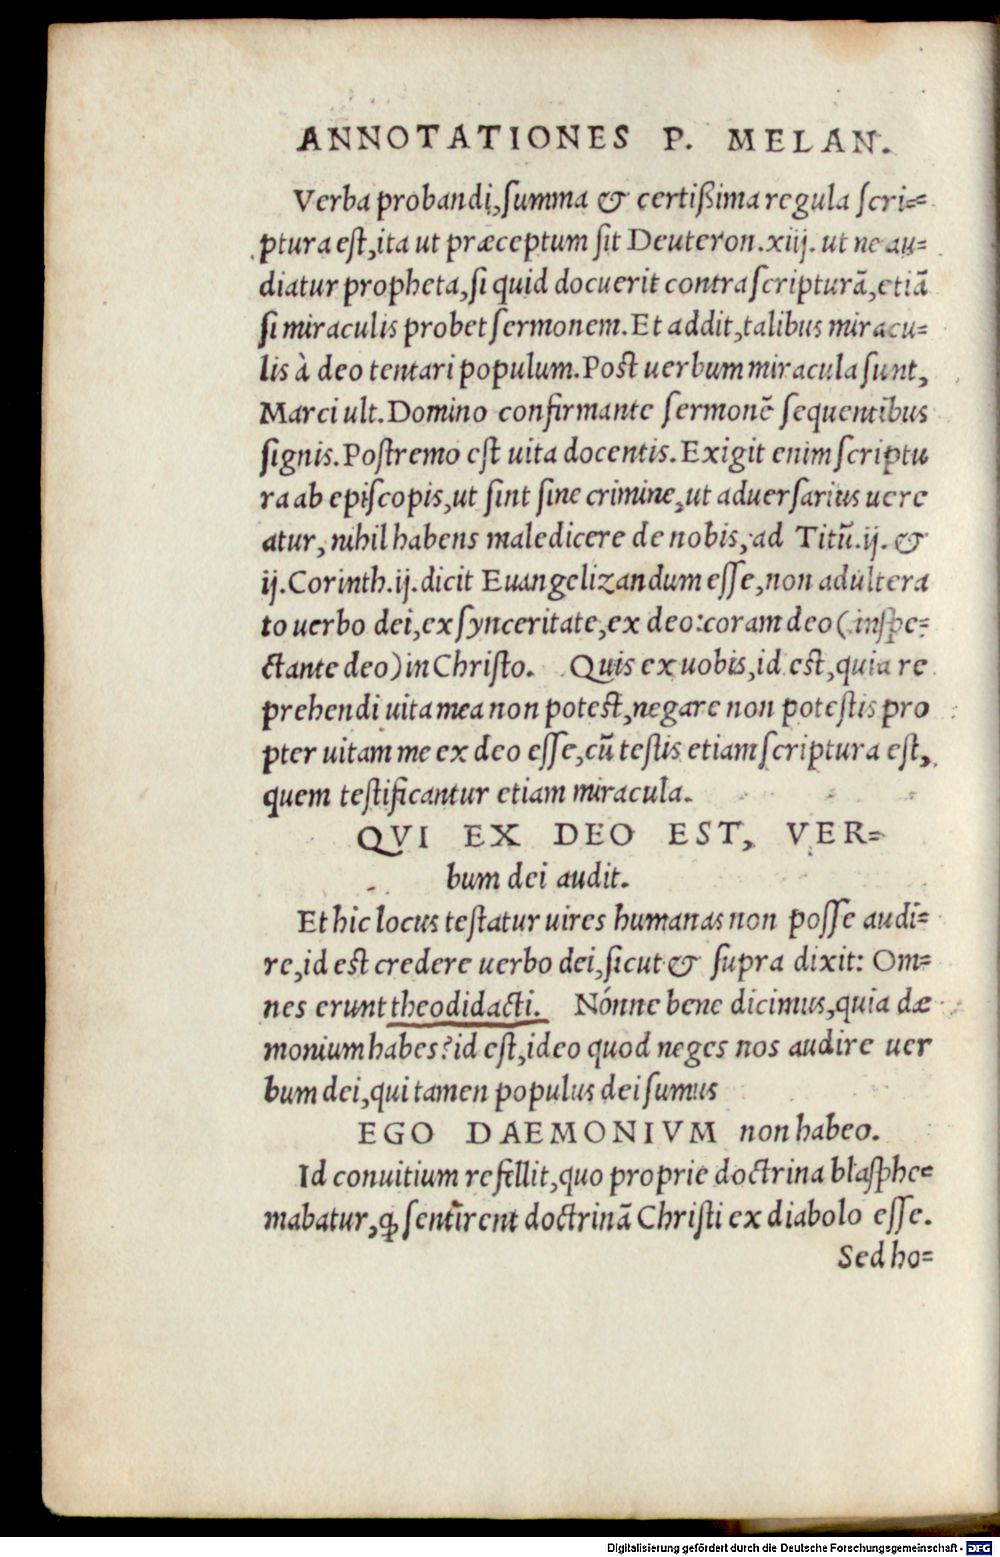 ANNOTATIONES P. MELAN.
Verba probandi, summa & certißima regula scri=
ptura est, ita ut præceptum sit Deuteron. xiij. ut ne au=
diatur propheta, si quid docuerit contra scripturã, etiã
si miraculis probet sermonem. Et addit, talibus miracu=
lis à deo tentari populum. Post uerbum miracula sunt,
Marci ult. Domino confirmante sermonẽ sequentibus
signis. Postremo est uita docentis. Exigit enim scriptu
ra ab episcopis, ut sint sine crimine, ut aduersarius uere
atur, nihil habens maledicere de nobis, ad Titũ. ij. &
ij. Corinth. ij. dicit Euangelizandum esse, non adultera
to uerbo dei, ex synceritate, ex deo: coram deo (inspe=
ctante deo) in Christo. Quis ex uobis, id est, quia re
prehendi uita mea non potest, negare non potestis pro
pter uitam me ex deo esse, cũ testis etiam scriptura est,
quem testificantur etiam miracula.
QVI EX DEO EST, VER=
bum dei audit.
Et hic locus testatur uires humanas non posse audi=
re, id est credere uerbo dei, sicut & supra dixit: Om=
nes erunt theodidacti. Nónne bene dicimus, quia dæ
monium habes? id est, ideo quod neges nos audire uer
bum dei, qui tamen populus dei sumus
EGO DAEMONIVM non habeo.
Id conuitium refellit, quo proprie doctrina blasphe=
mabatur, ꝙ sentirent doctrinã Christi ex diabolo esse.
Sed ho=
Digitalisierung gefördert durch die Deutsche Forschungsgemeinschaft - DFG